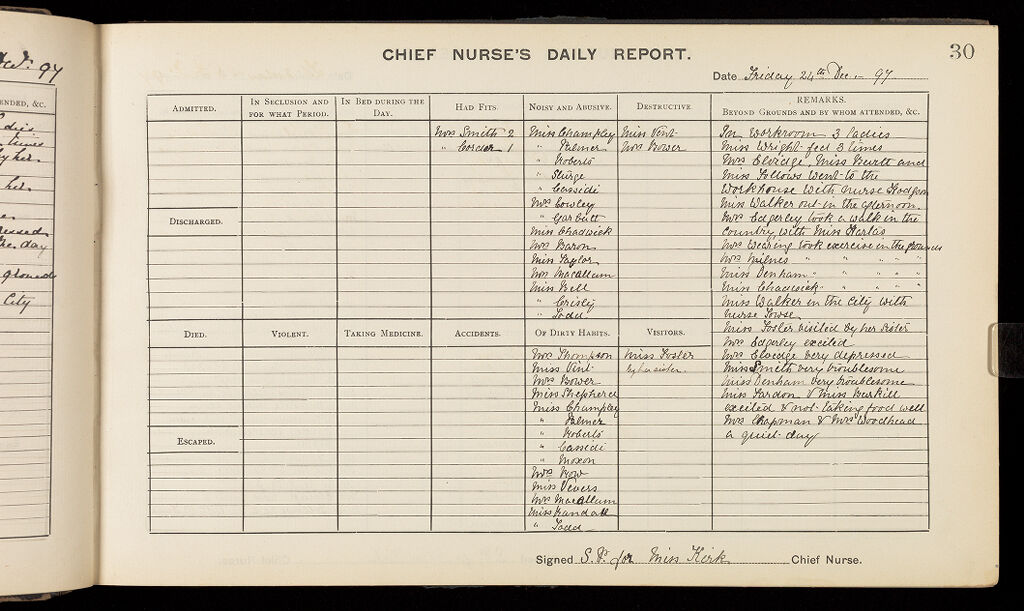 Dec. 97
ENDED, &C.
her
the day
grounds
City
30
CHIEF NURSE'S DAILY REPORT.
Date Friday 24th Dec. - 97
ADMITTED.
IN SECLUSION AND FOR WHAT PERIOD.
IN BED DURING THE DAY.
HAD FITS.
Mrs Smith 2
" Corder 1
NOISY AND ABUSIVE.
Miss Champley
" Palmer
" Roberts
" Sturge
" Cassidi
Mrs Cowley
" Garbutt
Miss Chadwick
Mrs Baron
Miss Taylor
Mrs Macallum
Miss Bell
" Crisby
" Todd
DESTRUCTIVE.
Miss Vint
Mrs Bower
REMARKS.
BEYOND GROUNDS AND BY WHOM ATTENDED, &C.
In Workroom 3 ladies
Miss Wright fed 3 times
Mrs Elvidge, Miss Burtt and
Miss Follows went to the
Workhouse with nurse Hodgson
Miss Walker out in the afternoon.
Mrs Edgerley took a walk in the
Country with Miss
Mrs Wearing took exercise in the grounds
Mrs Milnes " " " " "
Miss Denham " " " " "
Miss Chadwick " " " " "
Miss Walker in the City with
Nurse Towse.
Miss Foster visited by her sister
Mrs Edgerley excited
Mrs Elvidge very depressed
Miss Smith very troublesome
Miss Denham very troublesome
Miss Fardon & Miss Burkill
excited & not taking food well
Mrs Chapman & Mrs Woodhead
a quiet day
DISCHARGED.
DIED.
VIOLENT.
TAKING MEDICINE.
ACCIDENTS.
OF DIRTY HABITS.
Mrs Thompson
Miss Vint
Mrs Bower
Miss Shepherd
Miss Champley
" Palmer
" Roberts
" Cassidi
" Moxon
Mrs Row
Miss Vevers
Mrs Macallum
Miss Randall
" Todd
VISITORS.
Miss Foster
by her sister.
ESCAPED.
Signed S. P. for Miss Kirk Chief Nurse.